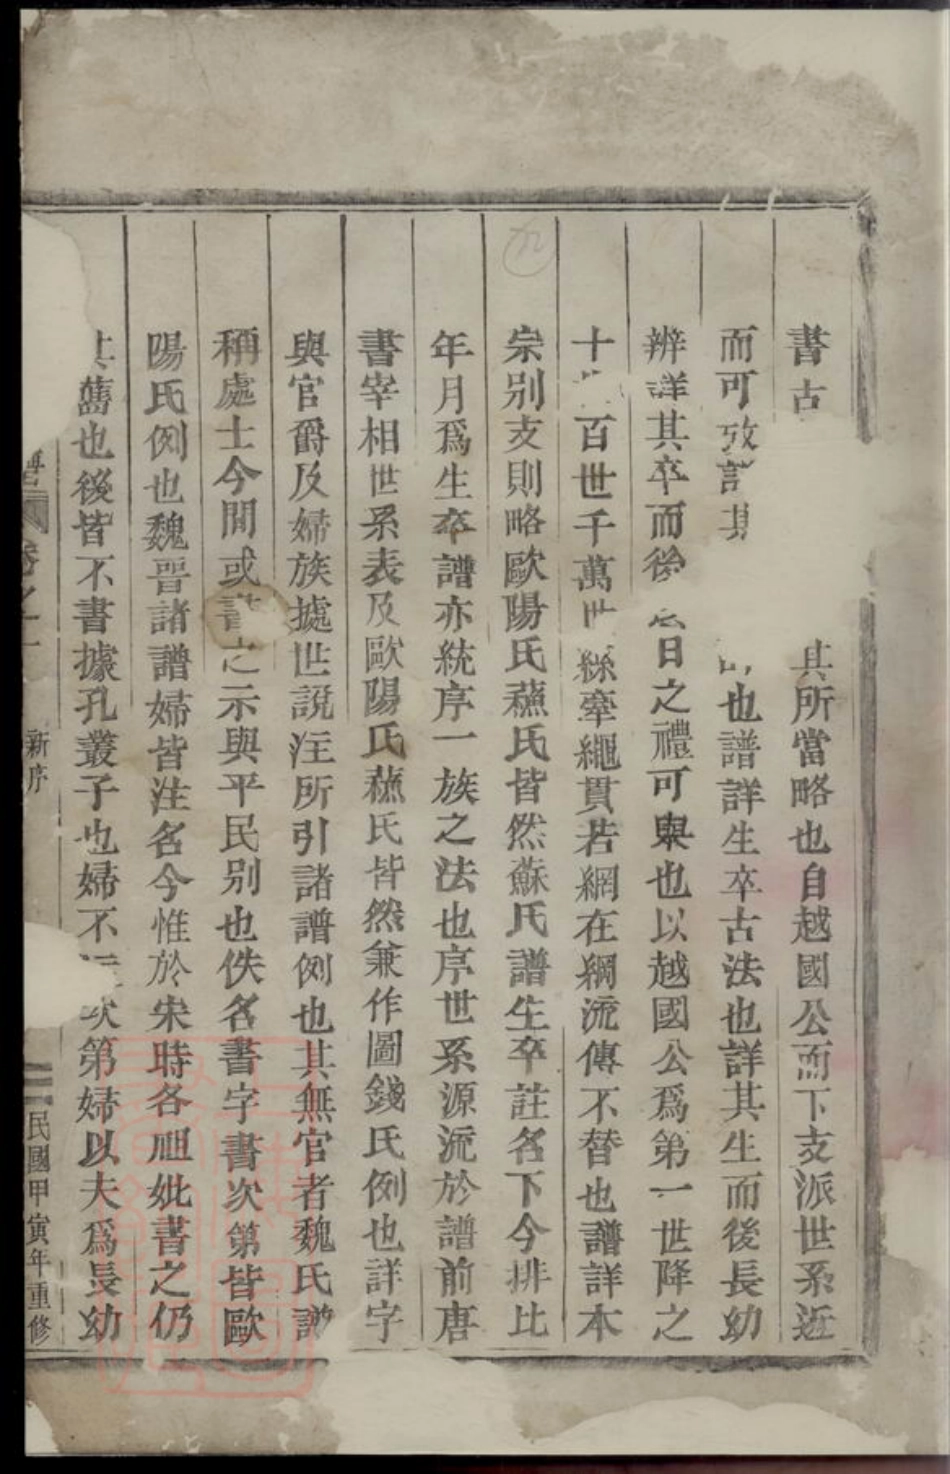 書古其所當略也自越國公而下支派世系近
而可攷詳其也譜詳生卒古法也詳其生而後長幼
辨詳其卒而後忌日之禮可舉也以越國公爲第一世降之
十百世千萬世絲牽繩貫若網在綱流傳不替也譜詳本
宗别支則略歐陽氏蘓氏皆然蘇氏譜生卒註名下今排比
年月爲生卒譜亦統序一族之法也序世系源流於譜前唐
書宰相世系表及歐陽氏蘓氏皆然兼作圖錢氏例也詳字
與官爵及婦族據世說注所引諸譜例也其無官者魏氏譜
稱處士今閒或書之示與平民别也佚名書字書次第皆歐
陽氏例也魏晋諸譜婦皆注名今惟於宋時各祖妣書之仍
其舊也後皆不書據孔叢子也婦不次第婦以夫爲長幼
譜 卷之一 新序 民國甲寅年重修